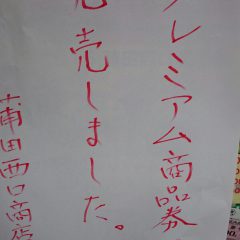 プレミアム商品券
完売しました。
蒲田西口商店